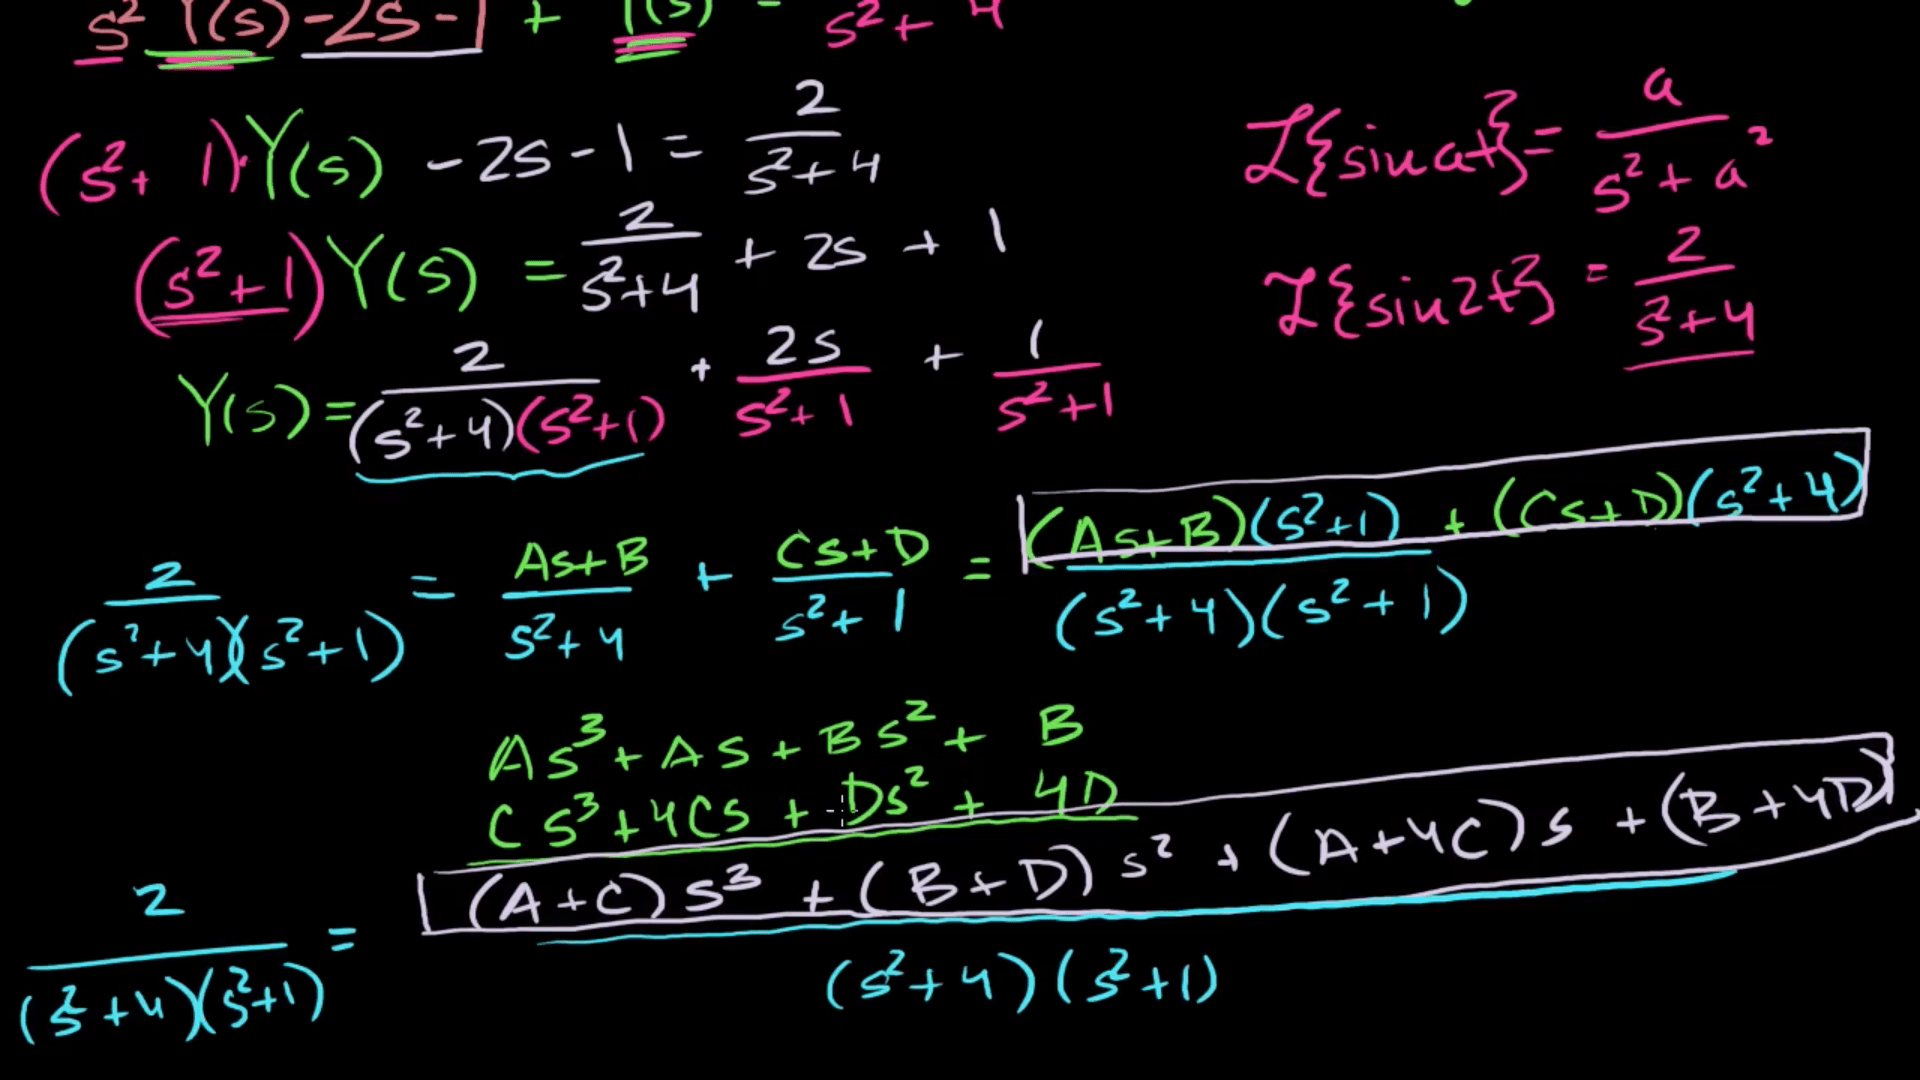 s² Y(s) - 2s - 1 + Y(s) = 2/(s² + 4)
(s² + 1)·Y(s) - 2s - 1 = 2/(s² + 4)
ℒ{sin at} = a/(s² + a²)
(s² + 1) Y(s) = 2/(s² + 4) + 2s + 1
ℒ{sin 2t} = 2/(s² + 4)
Y(s) = 2/((s² + 4)(s² + 1)) + 2s/(s² + 1) + 1/(s² + 1)
2/((s² + 4)(s² + 1)) = (As + B)/(s² + 4) + (Cs + D)/(s² + 1) = ((As + B)(s² + 1) + (Cs + D)(s² + 4))/((s² + 4)(s² + 1))
As³ + As + Bs² + B
Cs³ + 4Cs + Ds² + 4D
2/((s² + 4)(s² + 1)) = ((A + C)s³ + (B + D)s² + (A + 4C)s + (B + 4D))/((s² + 4)(s² + 1))